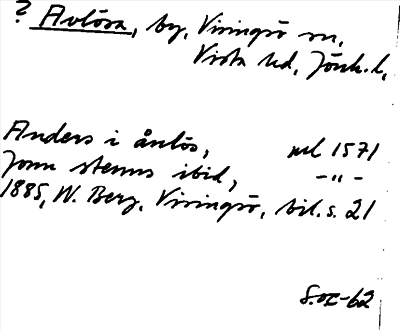 ? Avlösa, by, Visingsö sn,
Vista hd, Jönk. l,
Anders i ånlös, ml 1571
Jonn stenns ibid, -"-
1885, W. Berg, Visingsö, bil. s. 21
S.OE-62